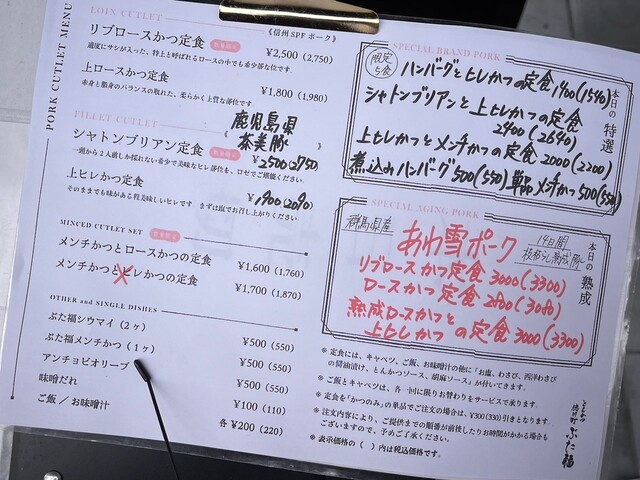 PORK CUTLET MENU
LOIN CUTLET
《信州SPFポーク》
リブロースかつ定食 数量限定 ¥2,500 (2,750)
適度にサシが入った、特上と呼ばれるロースの中でも希少部な位です
上ロースかつ定食 ¥1,800 (1,980)
赤身と脂身のバランスの取れた、柔らかく上質な部位です
FILLET CUTLET
《鹿児島県 茶美豚》
シャトンブリアン定食 数量限定 ¥2500(2750)
一頭から2人前しか採れない希少で美味なヒレ部位を、ロゼでご堪能ください
上ヒレかつ定食 ¥1900(2090)
そのままでも味がある純美味しいヒレです まずは塩でお召し上がりください
MINCED CUTLET SET 数量限定
メンチかつとロースかつの定食 ¥1,600 (1,760)
メンチかつとヒレかつの定食 ¥1,700 (1,870)
OTHER and SINGLE DISHES
ぶた福シウマイ(2ヶ) ¥500 (550)
ぶた福メンチかつ(1ヶ) ¥500 (550)
アンチョビオリーブ ¥500 (550)
味噌だれ ¥100 (110)
ご飯/お味噌汁 各¥200 (220)
SPECIAL BRAND PORK
本日の特選
限定5食
ハンバーグとヒレかつの定食1400(1540)
シャトンブリアンと上ヒレかつの定食
2400(2640)
上ヒレかつとメンチかつの定食2000(2200)
煮込みハンバーグ500(550) 単品メンチかつ500(550)
SPECIAL AGING PORK
本日の熟成
群馬県産
あわ雪ポーク
14日間
枝枯らし熟成豚
リブロースかつ定食3000(3300)
ロースかつ定食2800(3080)
熟成ロースかつと
上ヒレかつの定食3000(3300)
※定食には、キャベツ、ご飯、お味噌汁の他に「お塩、わさび、西洋わさび
の醤油漬け、とんかつソース、胡麻ソース」が付いてきます。
※ご飯とキャベツは、各一回に限りお替わりをサービスで承ります。
※定食を「かつのみ」の単品でご注文の場合は、¥300(330)引きとなります
※注文内容により、ご提供までの順番が前後したりお時間がかかる場合も
ございますので、予めご了承ください。
※表示価格の( )内は税込価格です。
とんかつ
ぶた福